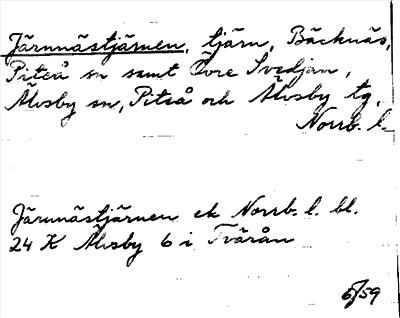 Järnnästjärnen, tjärn, Bäcknäs,
Piteå sn samt Övre Svedjan,
Älvsby sn, Piteå och Älvsby tg,
Norrb. l.
Järnnästjärnen ek Norrb. l. bl.
24 K Älvsby 6 i Tvärån
5/59